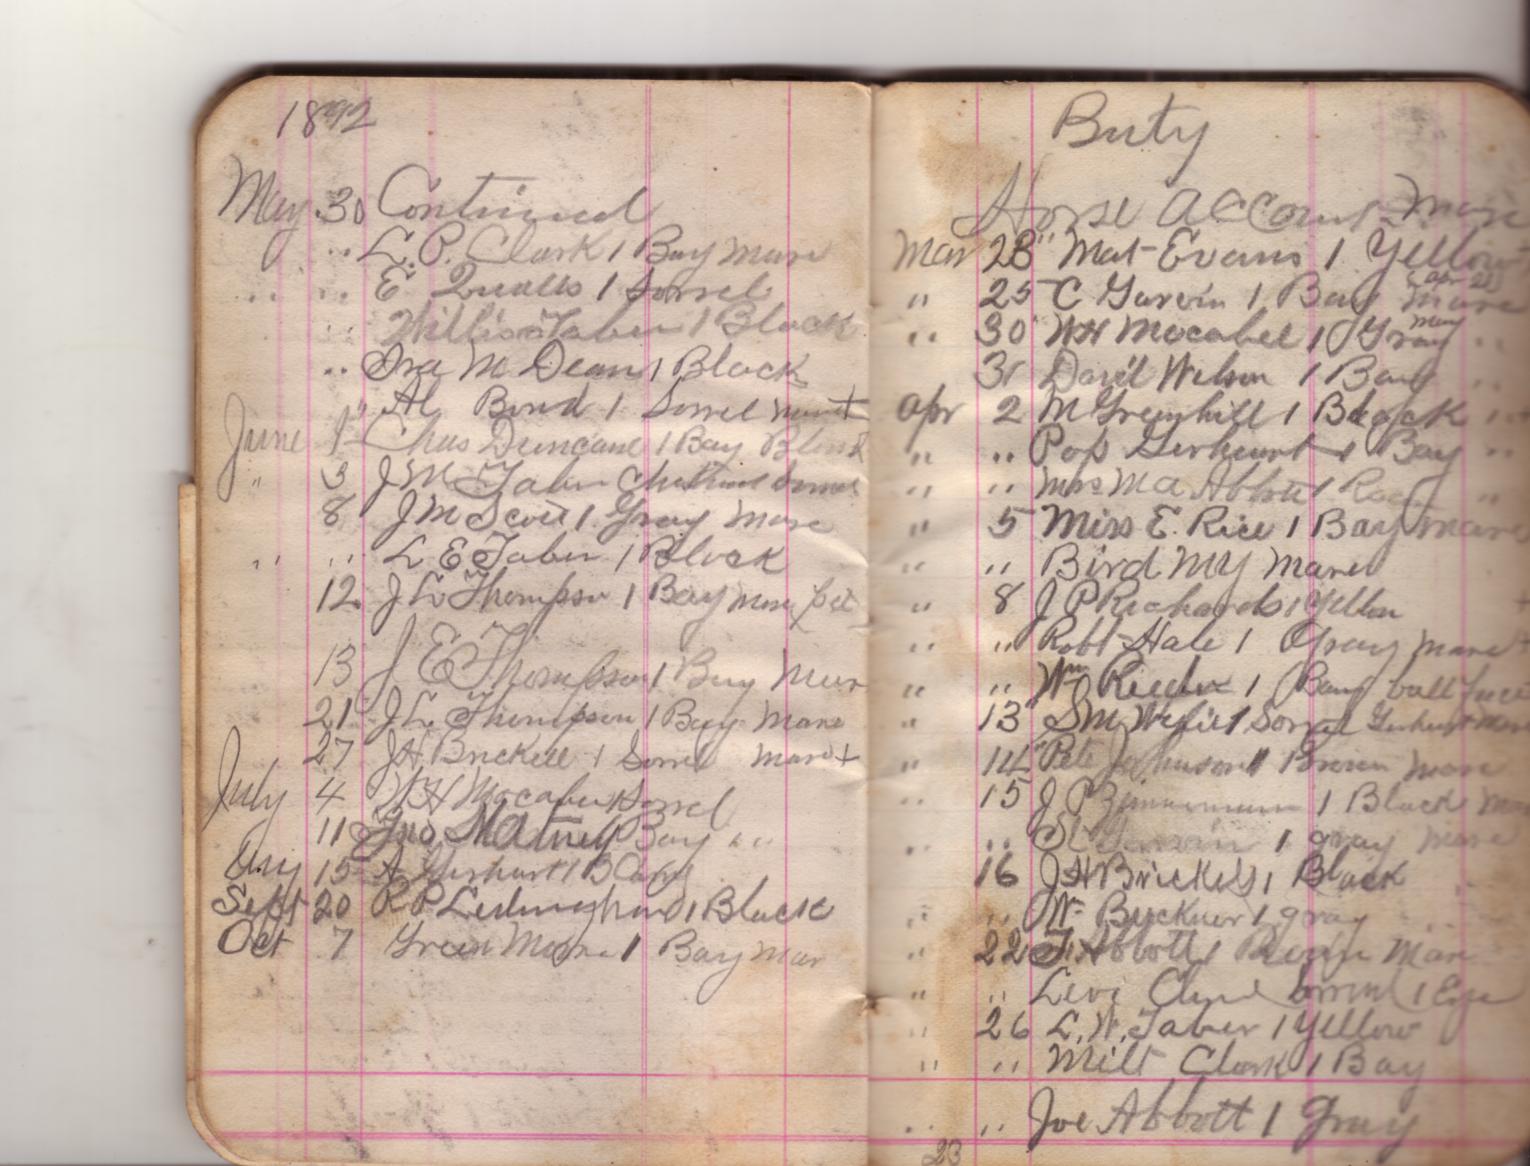 1892
May 30 Continued
" L. P. Clark 1 Bay mare
" " E Qualls 1 Sorrel
" Willis Taber 1 Black
" Ira M Dean 1 Black
" Al Bond 1 Sorrel mare +
June 1 Chas Duncane 1 Bay
" 3 J M Taber
8 J M Scott 1 Gray mare
" " L E Taber 1 Black
12 J L Thompson 1 Bay mare
13 J E Thompson 1 Bay Mare
21 J L Thompson 1 Bay Mare
27 J H Brickell 1 Sorrel mare +
July 4 W H Mocabee Sorrel
11 Jno Matney Bay "
Aug 15 A Gerhart 1 Bay
Sept 20 R P 1 Black
Oct 7 Green Moore 1 Bay mar
Buty
Horse Account Mare
Mar 28 " Mat Evans 1 Yellow
" 25 C Garvin 1 Bay mare
" 30 W H Mocabee 1 Gray "
31 David Wilson 1 Bay "
Apr 2 M Greenhill 1 Black "
" " Pop Gerheart 1 Bay "
" " Mrs M A Abbott 1 "
" 5 Miss E. Rice 1 Bay mare
" " Bird My Mare
" 8 J P Richards 1 Yellow
" " Robt Hale 1 Gray mare +
" " Wm Rieder 1 Bay ball face
" 13 S M 1 Sorrel Mare
" 14 Pete Johnson 1 Brown Mare
" 15 J P Zimmerman 1 Black Mare
" " Garvin 1 gray mare
16 J H Brickell 1 Black "
" " W Buckner 1 gray
22 Abbott 1 Mare
" " Levi 1 Eye
" 26 L. W. Taber 1 Yellow
" " Milt Clark 1 Bay
" " Joe Abbott 1 Gray
23